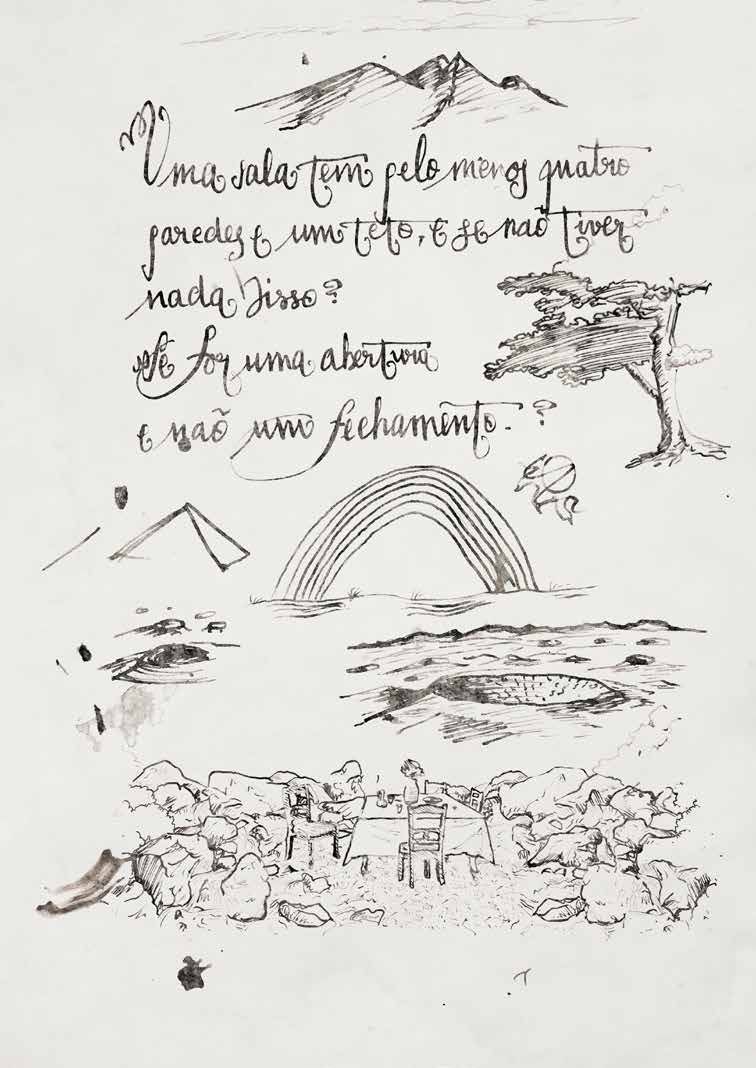 Uma sala tem pelo menos quatro
paredes e um teto, e se não tiver
nada disso?
Se for uma abertura
e não um fechamento. ?